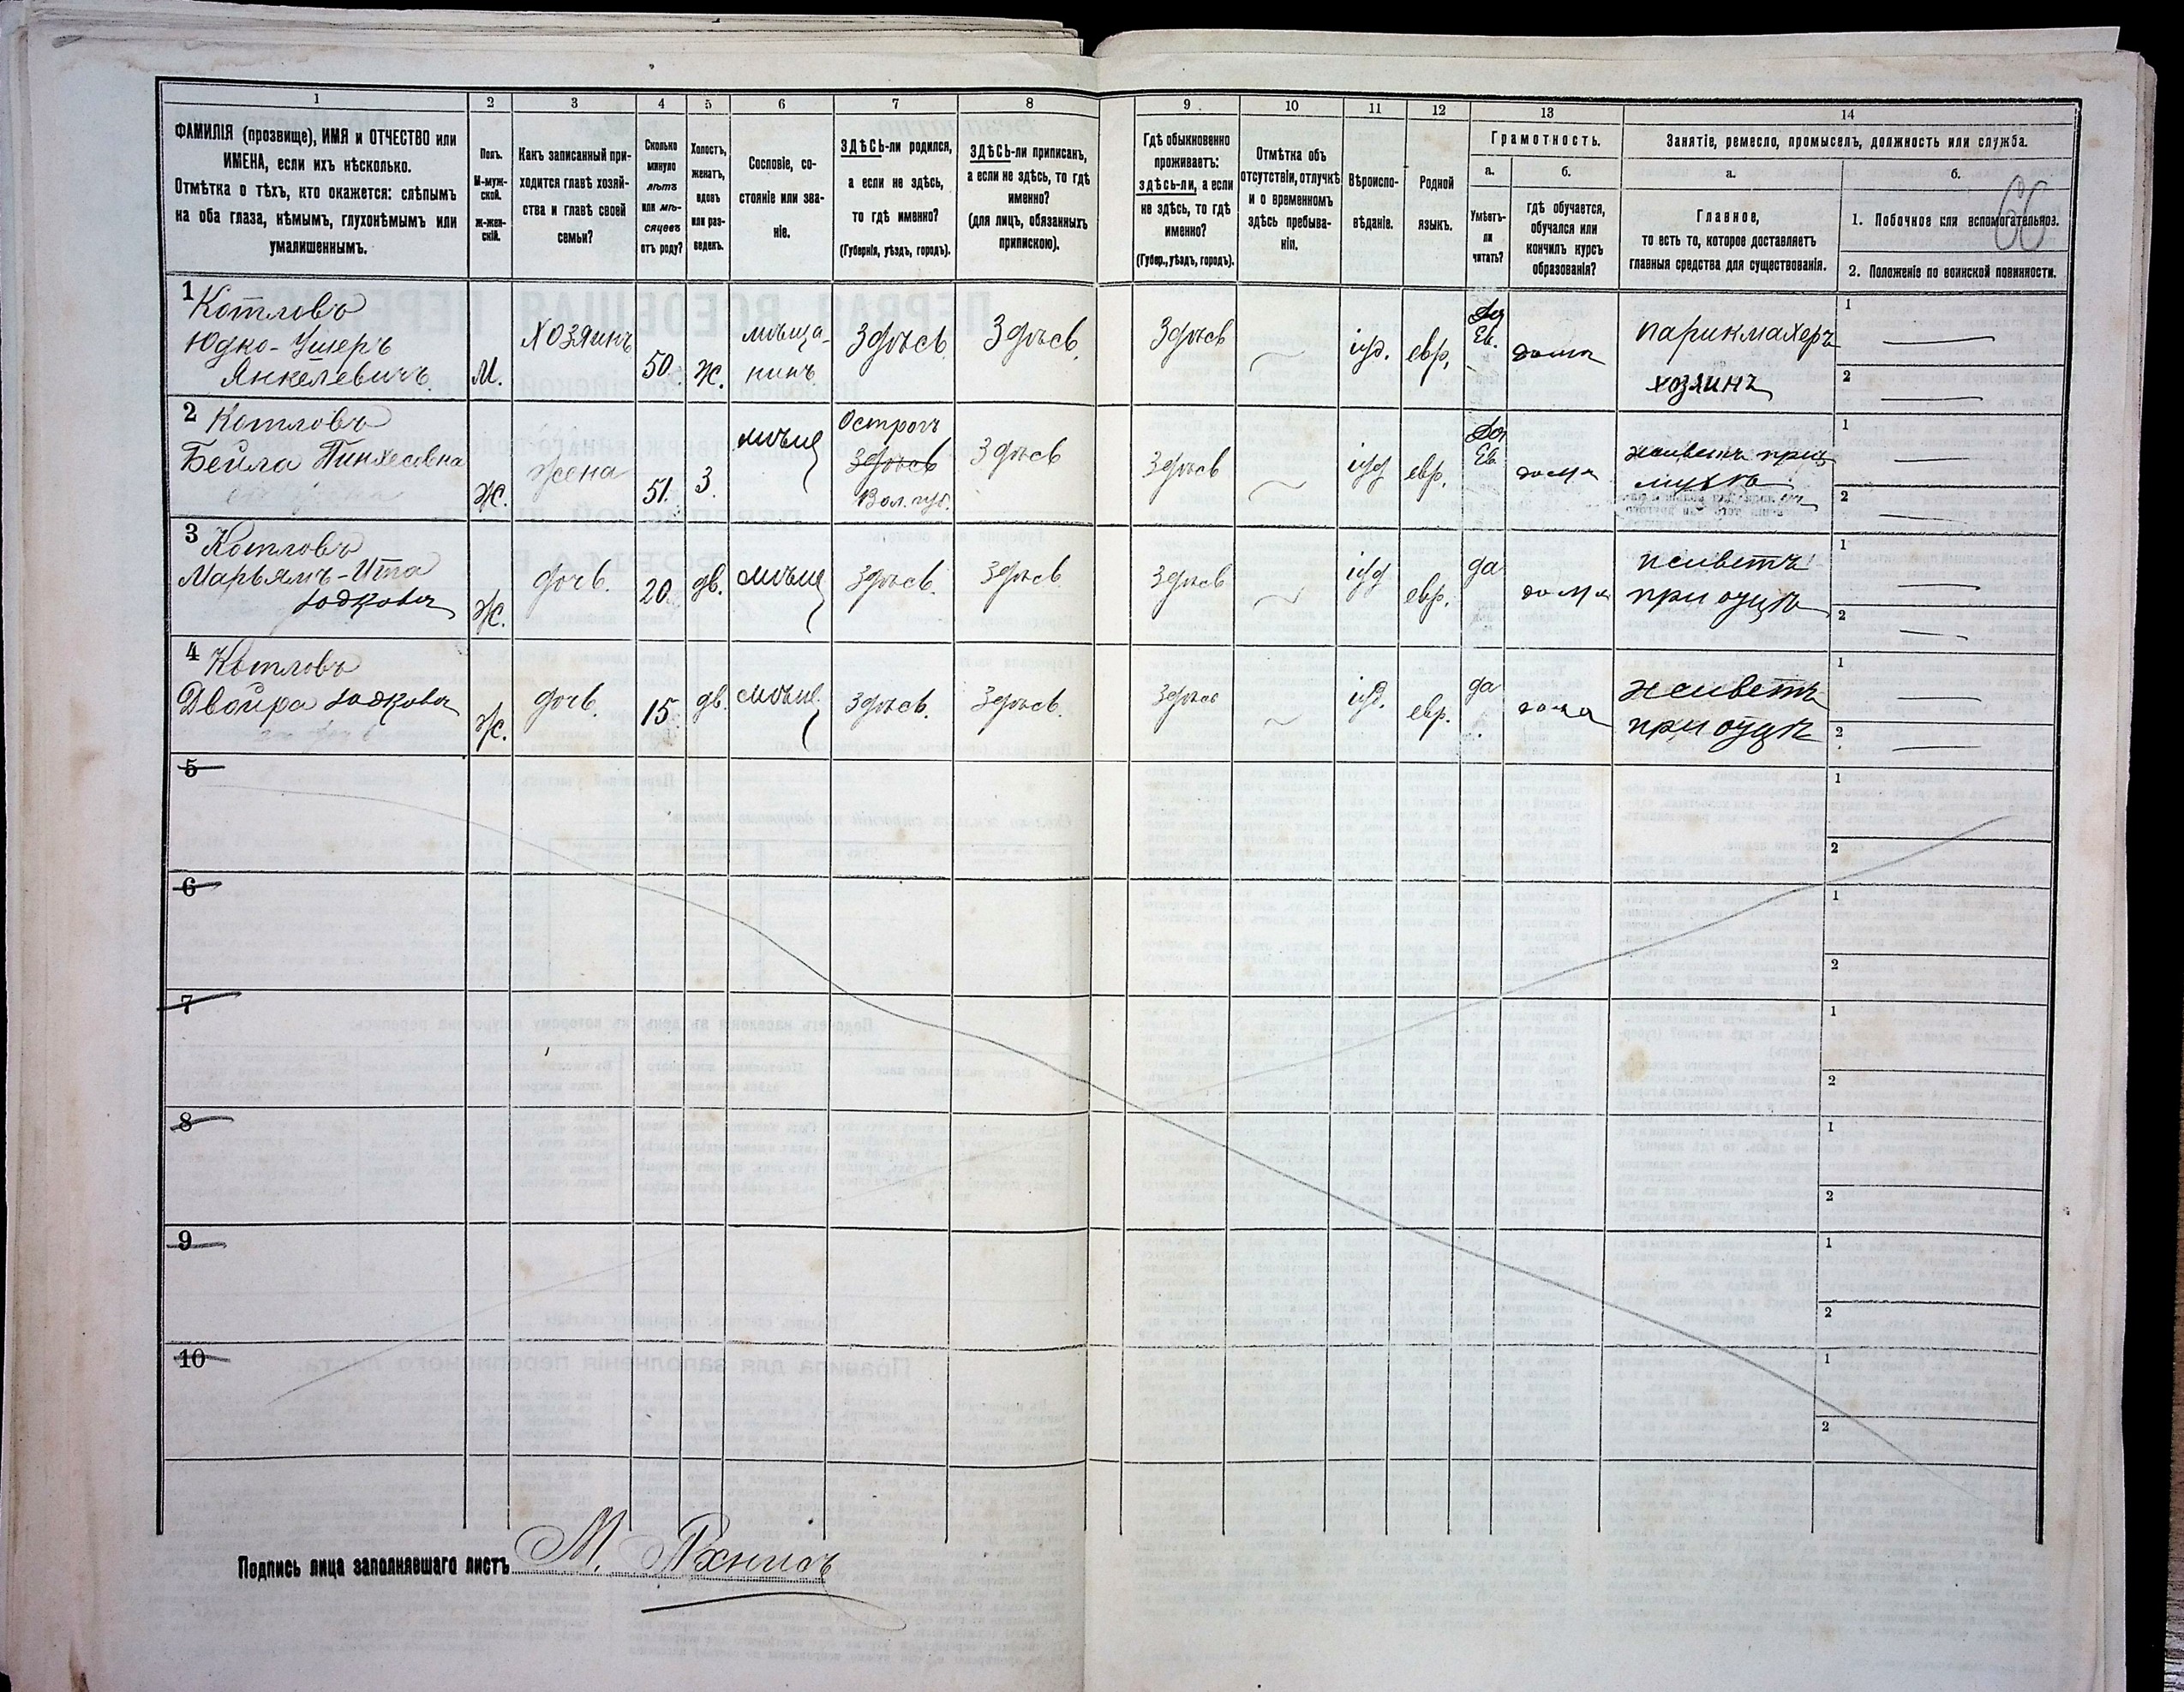 1
2
3
4
5
6
7
8
9
10
11
12
13
14
ФАМИЛІЯ (прозвище), ИМЯ и ОТЧЕСТВО или
ИМЕНА, если ихъ нѣсколько.
Отмѣтка о тѣхъ, кто окажется: слѣпымъ
на оба глаза, нѣмымъ, глухонѣмымъ или
умалишеннымъ.
Полъ.
М-муж-
ской.
Ж-жен-
скій.
Какъ записанный при-
ходится главѣ хозяй-
ства и главѣ своей
семьи?
Сколько
минуло
лѣтъ
или мѣ-
сяцевъ
отъ роду?
Холостъ,
женатъ,
вдовъ
или раз-
веденъ.
Сословіе, со-
стояніе или зва-
ніе.
ЗДѢСЬ-ли родился,
а если не здѣсь,
то гдѣ именно?
(Губернія, уѣздъ, городъ).
ЗДѢСЬ-ли приписанъ,
а если не здѣсь, то гдѣ
именно?
(для лицъ, обязанныхъ
припискою).
Гдѣ обыкновенно
проживаетъ:
здѣсь-ли, а если
не здѣсь, то гдѣ
именно?
(Губер., уѣздъ, городъ).
Отмѣтка объ
отсутствіи, отлучкѣ
и о временномъ
здѣсь пребыва-
ніи.
Вѣроиспо-
вѣданіе.
Родной
языкъ.
Грамотность.
а.
Умѣетъ-
ли
читать?
б.
гдѣ обучается,
обучался или
кончилъ курсъ
образованія?
Занятіе, ремесло, промыселъ, должность или служба.
а.
Главное,
то есть то, которое доставляетъ
главныя средства для существованія.
б.
1. Побочное или вспомогательное.
2. Положеніе по воинской повинности.
1
Котловъ
Юдко-Ушеръ
Янкелевичъ
М.
Хозяинъ
50.
Ж.
мѣща-
нинъ
Здѣсь
Здѣсь
Здѣсь
іуд.
евр.
Ев.
дома
парикмахеръ
хозяинъ
1
2
2
Котловъ
Бейла Пинхесовна
Ж.
жена
51.
З.
мѣщ
Острогъ
Здѣсь
Вол. губ.
Здѣсь
Здѣсь
іуд
евр.
Ев
дома
живетъ при
мужѣ
1
2
3
Котловъ
Марьямъ-Ита
Юдкова
Ж.
дочь.
20.
дв.
мѣщ
Здѣсь.
Здѣсь.
Здѣсь
іуд
евр.
да
дома
живетъ
при отцѣ
1
2
4
Котловъ
Двойра Юдкова
Ж.
дочь.
15.
дв.
мѣщ.
Здѣсь.
Здѣсь.
Здѣсь
іуд.
евр.
да
дома
живетъ
при отцѣ
1
2
5
1
2
6
1
2
7
1
2
8
1
2
9
1
2
10
1
2
Подпись лица заполнявшаго листъ
М.